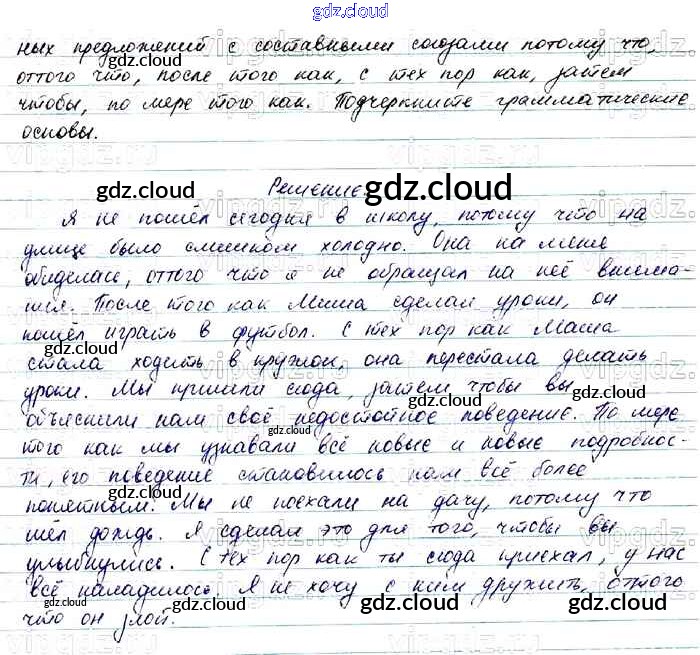 gdz.cloud
ных предложений с составными союзами потому что,
оттого что, после того как, с тех пор как, затем
чтобы, по мере того как. Подчеркните грамматические
основы.
Решение.
Я не пошёл сегодня в школу, потому что на
улице было слишком холодно. Она на меня
обиделась, оттого что я не обращал на неё внима-
ния. После того как Миша сделал уроки, он
пошёл играть в футбол. С тех пор как Маша
стала ходить в кружок, она перестала делать
уроки. Мы пришли сюда, затем чтобы вы
объяснили нам своё недостойное поведение. По мере
того как мы узнавали всё новые и новые подробнос-
ти, его поведение становилось нам всё более
понятным. Мы не поехали на дачу, потому что
шёл дождь. Я сделал это для того, чтобы вы
улыбнулись. С тех пор как ты сюда приехал, у нас
всё наладилось. Я не хочу с ним дружить, оттого
что он злой.